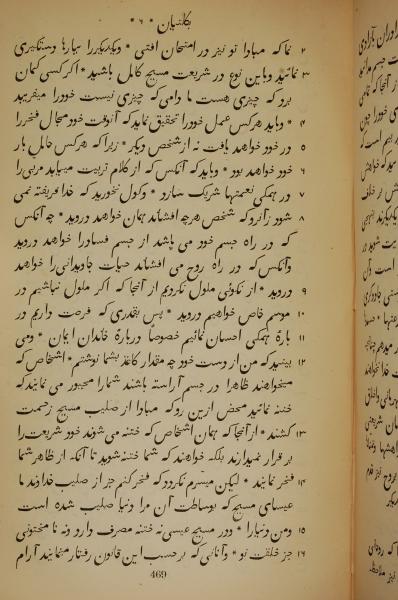 گلتیان * ۶ *
۲ نما که مبادا تو نیز در امتحان افتی * و یکدیگررا بارها دستگیری
۳ نمائید و باین نوع در شریعت مسیح کامل باشید * اگر کسی گمان
برد که چیزی هست ما دامی که چیزی نیست خودرا میفریبد
۴ * و باید هر کس عمل خودرا تحقیق نماید که آنوقت خود مجال فخررا
۵ در خود خواهد یافت نه از شخص دیگر * زیرا که هر کس حامل بار
۶ خود خواهد بود * و باید که آنکس که از کلام تربیت میباید مربی را
۷ در همگی نعمتها شریک سازد * و گول نخورید که خدا فریفته نمی
۸ شود زآنرو که شخص هر چه افشاند همان خواهد دروید * چه آنکس
که در راه جسم خود می پاشد از جسم فسادرا خواهد دروید
وآنکس که در راه روح می افشاند حیات جاودانی را خواهد
۹ دروید * از نکوئی ملول نگردیم از آنجا که اگر ملول نباشیم در
۱۰ موسم خاص خواهیم دروید * پس بقدری که فرصت داریم در
۱۱ بارهٔ همگی احسان نمائیم خصوصاً دربارهٔ خاندان ایمان * ومی
۱۲ بینید که من از دست خود چه مقدار کاغذ بشما نوشتم * اشخاص که
میخواهند ظاهرا در جسم آراسته باشند شمارا مجبور می نمایند که
ختنه نمائید محض ازین رو که مبادا از صلیب مسیح زحمت
۱۳ کشند * از آنجا که همان اشخاص که ختنه می شوند خود شریعت را
بر قرار نمیدارند بلکه خواهند که شما ختنه شوید تا آنکه از ظاهر شما
۱۴ فخر نمایند * لیکن میسرم نگردد که فخر کنم جز از صلیب خداوند ما
عیسای مسیح که بوساطت آن مرا دنیا صلیب شده است
۱۵ ومن دنیارا * ودر مسیح عیسی نه ختنه مصرف دارد ونه نا مختونی
۱۶ جز خلقت نو * وآنانی که بر حسب این قانون رفتار مینمایند آرام
469